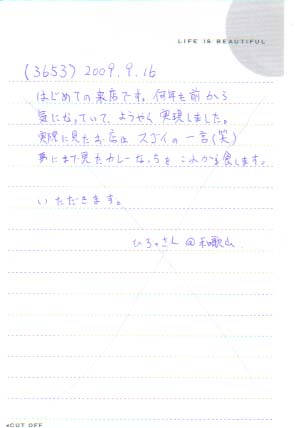 LIFE IS BEAUTIFUL
(3653) 2009.9.16
はじめての来店です。何年も前から
気になっていて、ようやく実現しました。
実際に見たお店は スゴイの一言(笑)
夢にまで見たカレーなっちをこれから食します。
いただきます。
ひろっさん@和歌山
◂CUT OFF